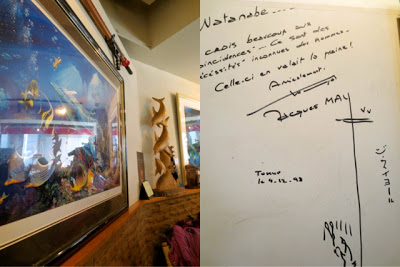 Watanabe.....
crois beaucoup aux
oincidences... Ce sont des
écessités inconnues des hommes.
Celle-ci en valait la peine!
Amicalement.
Jacques MAYOL
Tokyo
le 4.12.98
ジャック・マイヨール